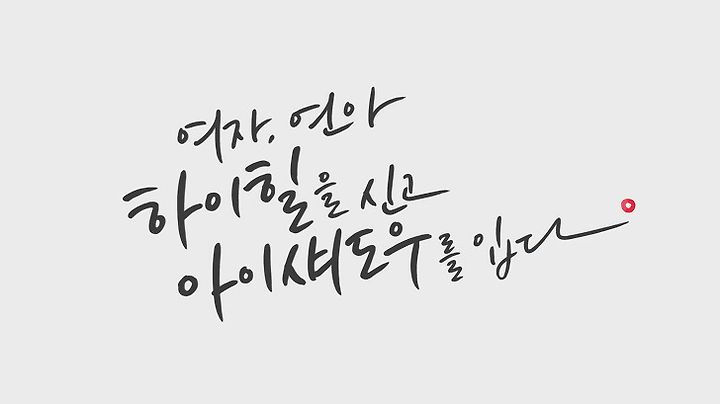 여자, 연아
하이힐을 신고
아이섀도우를 입다